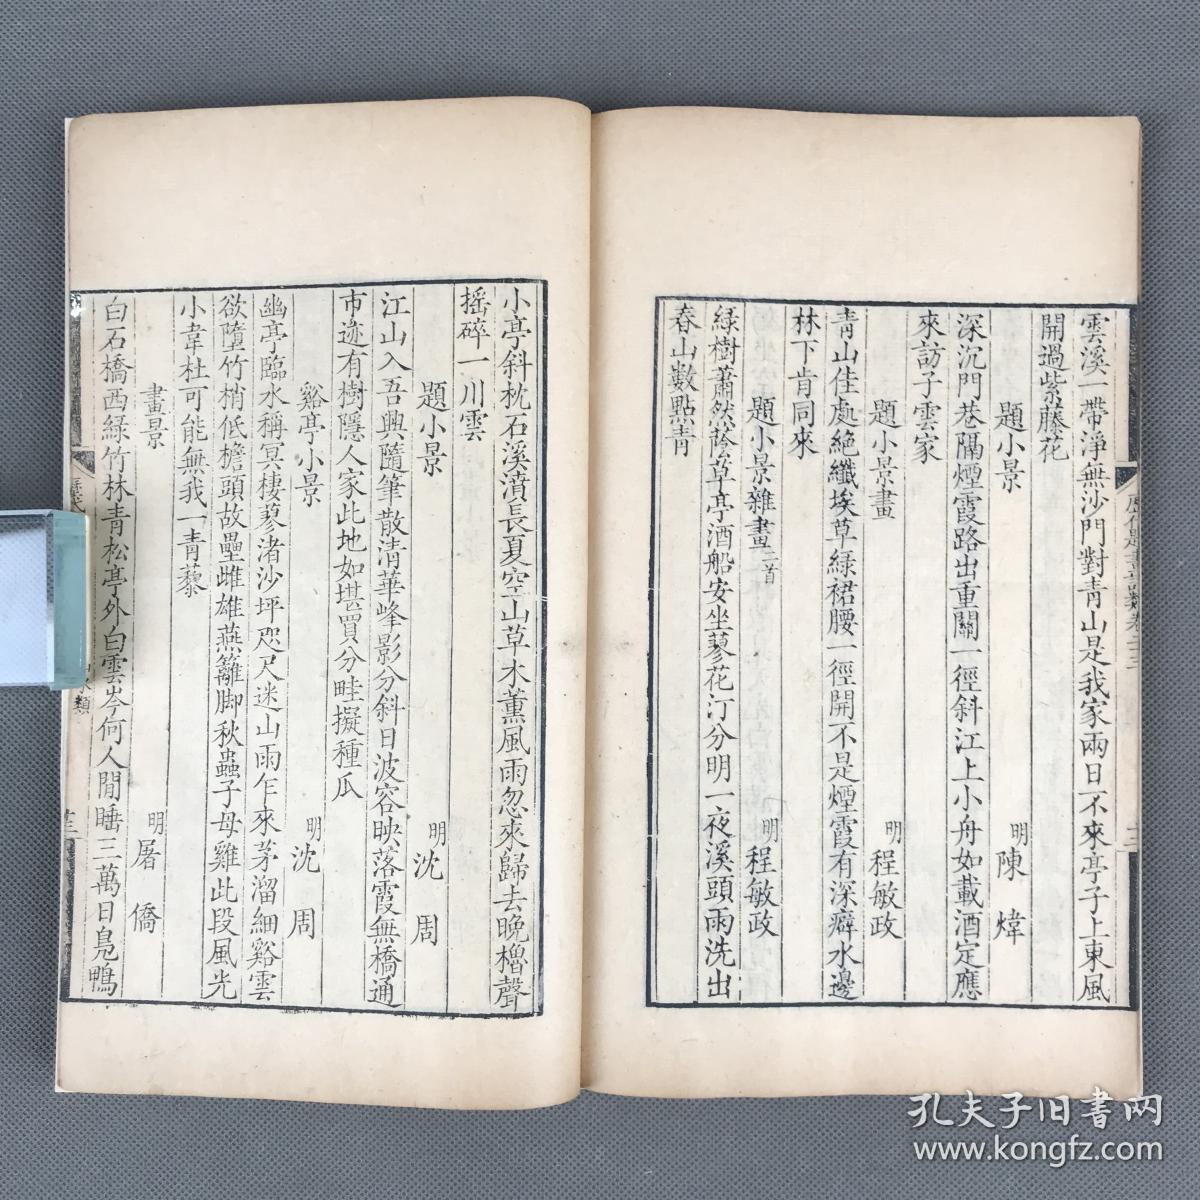 雲溪一帶淨無沙門對青山是我家兩日不來亭子上東風
開過紫藤花
題小景
明陳煒
深沉門巷隔煙霞路出重關一徑斜江上小舟如載酒定應
來訪子雲家
題小景畫
明程敏政
青山佳處絕纖埃草綠裙腰一徑開不是煙霞有深癖水邊
林下肯同來
題小景雜畫二首
明程敏政
綠樹蕭然蔭草亭酒船安坐蓼花汀分明一夜溪頭雨洗出
春山數點青
小亭斜枕石溪濆長夏空山草木薰風雨忽來歸去晚櫓聲
搖碎一川雲
題小景
明沈周
江山入吾興隨筆散清華峰影分斜日波容映落霞無橋通
市迹有樹隱人家此地如堪買分畦擬種瓜
谿亭小景
明沈周
幽亭臨水稱冥棲蓼渚沙坪咫尺迷山雨乍來茅溜細谿雲
欲墮竹梢低檐頭故壘雌雄燕籬腳秋蟲子母雞此段風光
小韋杜可能無我一青藜
畫景
明屠僑
白石橋西綠竹林青松亭外白雲岑何人閒睡三萬日鳧鴨
歷代題畫詩類卷二十三
孔夫子旧书网
www.kongfz.com